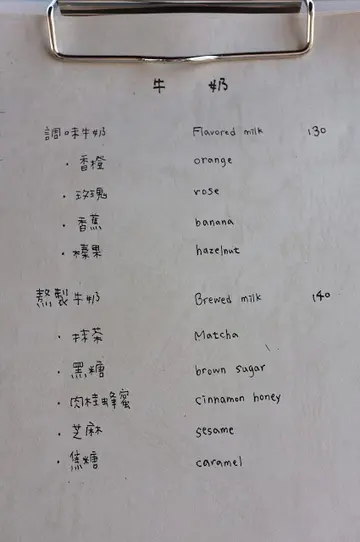 牛奶
調味牛奶 Flavored milk 130
· 香橙 orange
· 玫瑰 rose
· 香蕉 banana
· 榛果 hazelnut
熬製牛奶 Brewed milk 140
· 抹茶 Matcha
· 黑糖 brown sugar
· 肉桂蜂蜜 cinnamon honey
· 芝麻 sesame
· 焦糖 caramel